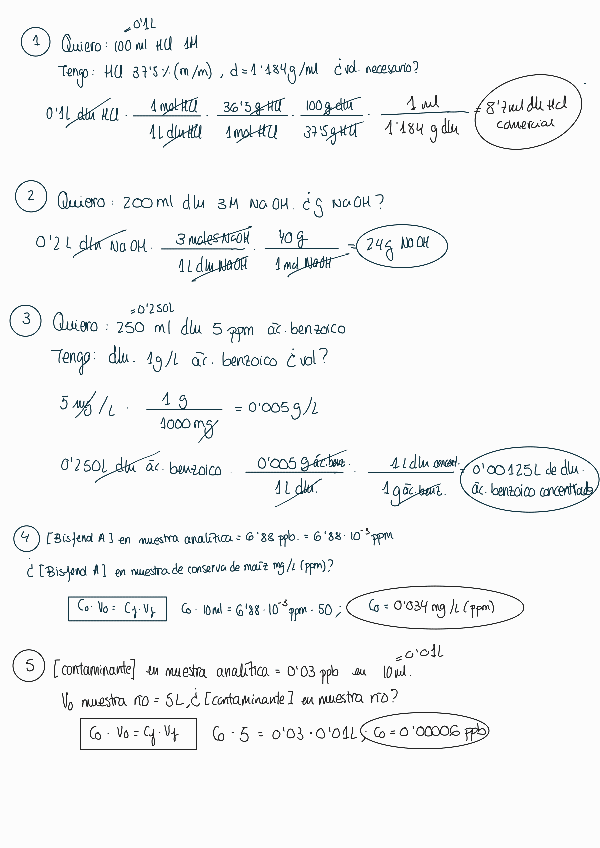 = 0'1L
1 Quiero: 100 ml HCl 1M
Tengo: HCl 37'5 % (m/m), d = 1'184 g/ml ¿vol. necesario?
0'1L dlu HCl · 1 mol HCl / 1L dlu HCl · 36'5 g HCl / 1 mol HCl · 100 g dlu / 37'5 g HCl · 1 ml / 1'184 g dlu = 8'7 ml dlu HCl
comercial
2 Quiero: 200 ml dlu 3M NaOH. ¿g NaOH?
0'2 L dlu NaOH · 3 moles NaOH / 1L dlu NaOH · 40 g / 1 mol NaOH = 24g NaOH
= 0'250L
3 Quiero: 250 ml dlu 5 ppm ác. benzoico
Tengo: dlu. 1g/L ác. benzoico ¿vol?
5 mg/L · 1 g / 1000 mg = 0'005 g/L
0'250L dlu ác. benzoico · 0'005 g ác. benz. / 1L dlu. · 1L dlu concent. / 1 g ác. benz. = 0'00125L de dlu.
ác. benzoico concentrada
4 [Bisfenol A] en muestra analítica = 6'88 ppb. = 6'88 · 10⁻³ ppm
¿[Bisfenol A] en muestra de conserva de maíz mg/L (ppm)?
C₀ · V₀ = Cf · Vf C₀ · 10 ml = 6'88 · 10⁻³ ppm · 50 ; C₀ = 0'034 mg/L (ppm)
= 0'01L
5 [contaminante] en muestra analítica = 0'03 ppb en 10 ml.
V₀ muestra río = 5L, ¿[contaminante] en muestra río?
C₀ · V₀ = Cf · Vf C₀ · 5 = 0'03 · 0'01L ; C₀ = 0'00006 ppb